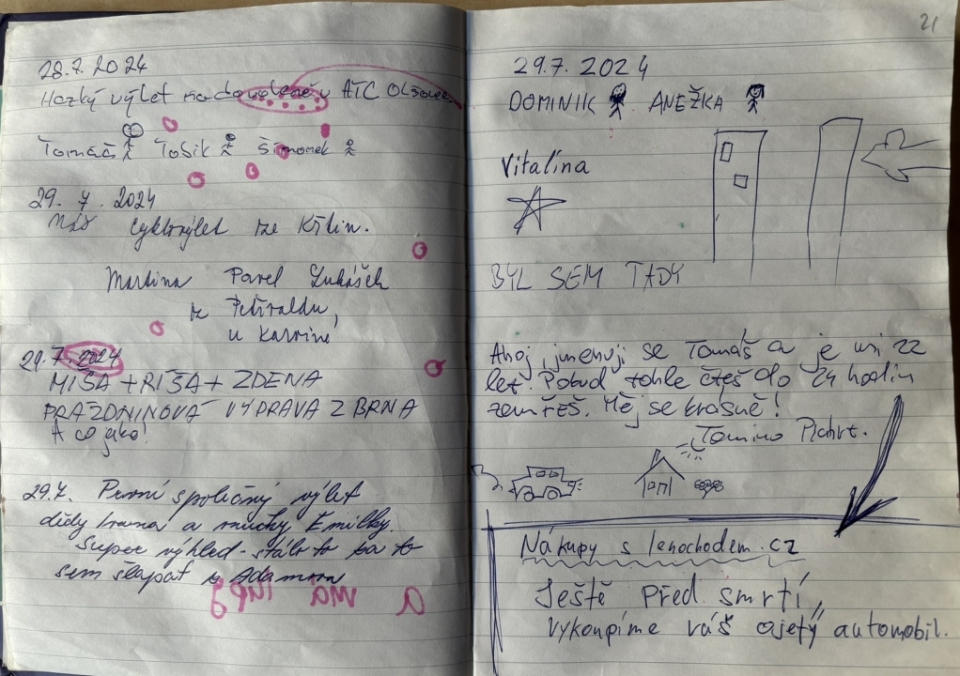 28.7.2024
Hezký výlet na dovolené v ATC Olšovec
Tomáš Tošík Šimonek
29. 7. 2024
Náš cyklovýlet ze Křtin.
Martina Pavel Lukášek
z Petřvaldu,
u Karviné
29.7. 2024
MIŠA + RIŠA + ZDENA
PRÁZDNINOVÁ VÝPRAVA Z BRNA
A co jako!
29.7. První společný výlet
dědy a vnučky Emilky.
Super výhled - stálo to za to
sem šlapat z Adamova
21
29.7. 2024
DOMINIK ANEŽKA
Vitalína
BYL SEM TADY
Ahoj, jmenuji se Tomáš a je mi 22
let. Pokud tohle čteš do 24 hodin
zemřeš. Měj se krásně!
Tomino Pichrt.
Nákupy s lenochodem.cz
Ještě před smrtí,
vykoupíme váš ojetý automobil.